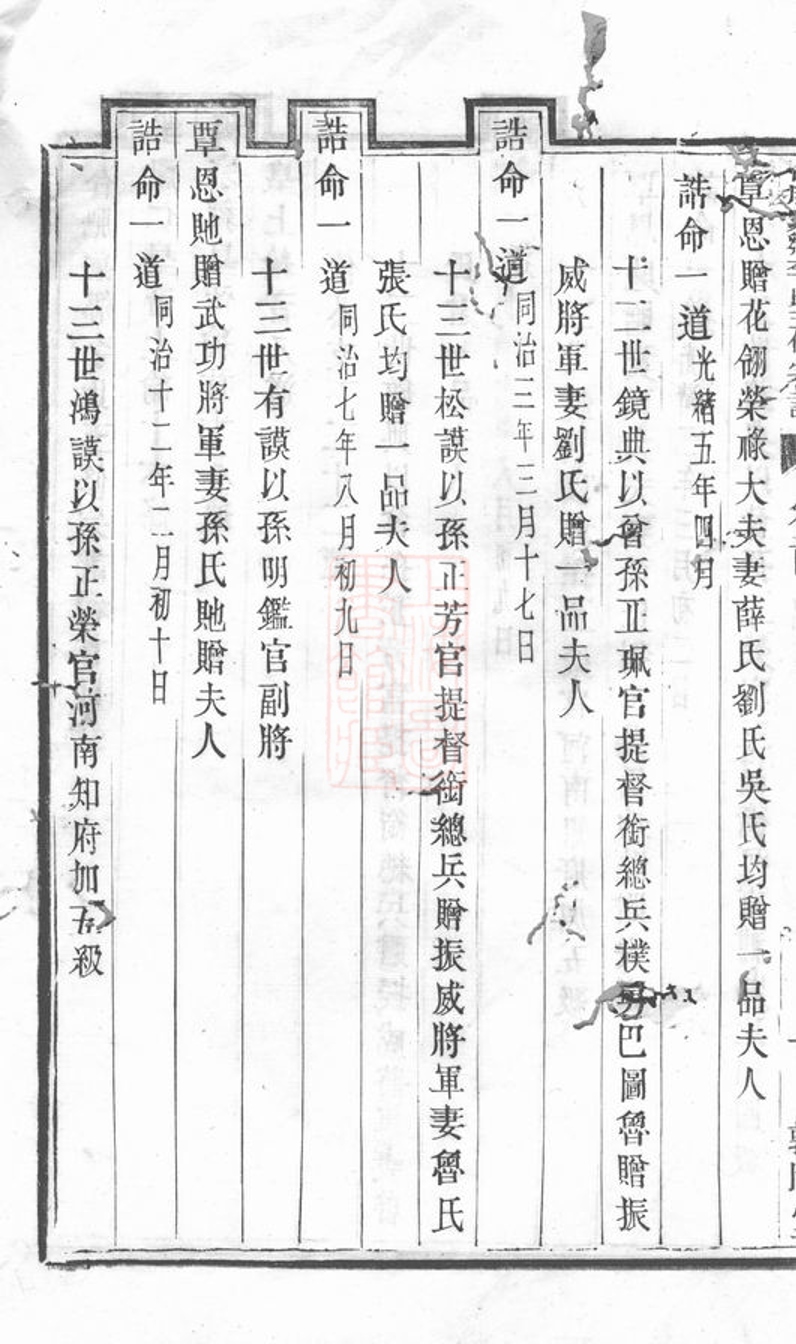 覃恩贈花翎榮祿大夫妻薛氏劉氏吳氏均贈一品夫人
誥命一道光緒五年四月
十二世鏡典以曾孫正珮官提督銜總兵樸勇巴圖魯贈振
威將軍妻劉氏贈一品夫人
誥命一道同治三年三月十七日
十三世松謨以孫正芳官提督銜總兵贈振威將軍妻魯氏
張氏均贈一品夫人
誥命一道同治七年八月初九日
十三世有謨以孫明鑑官副將
覃恩貤贈武功將軍妻孫氏貤贈夫人
誥命一道同治十二年二月初十日
十三世鴻謨以孫正榮官河南知府加五級